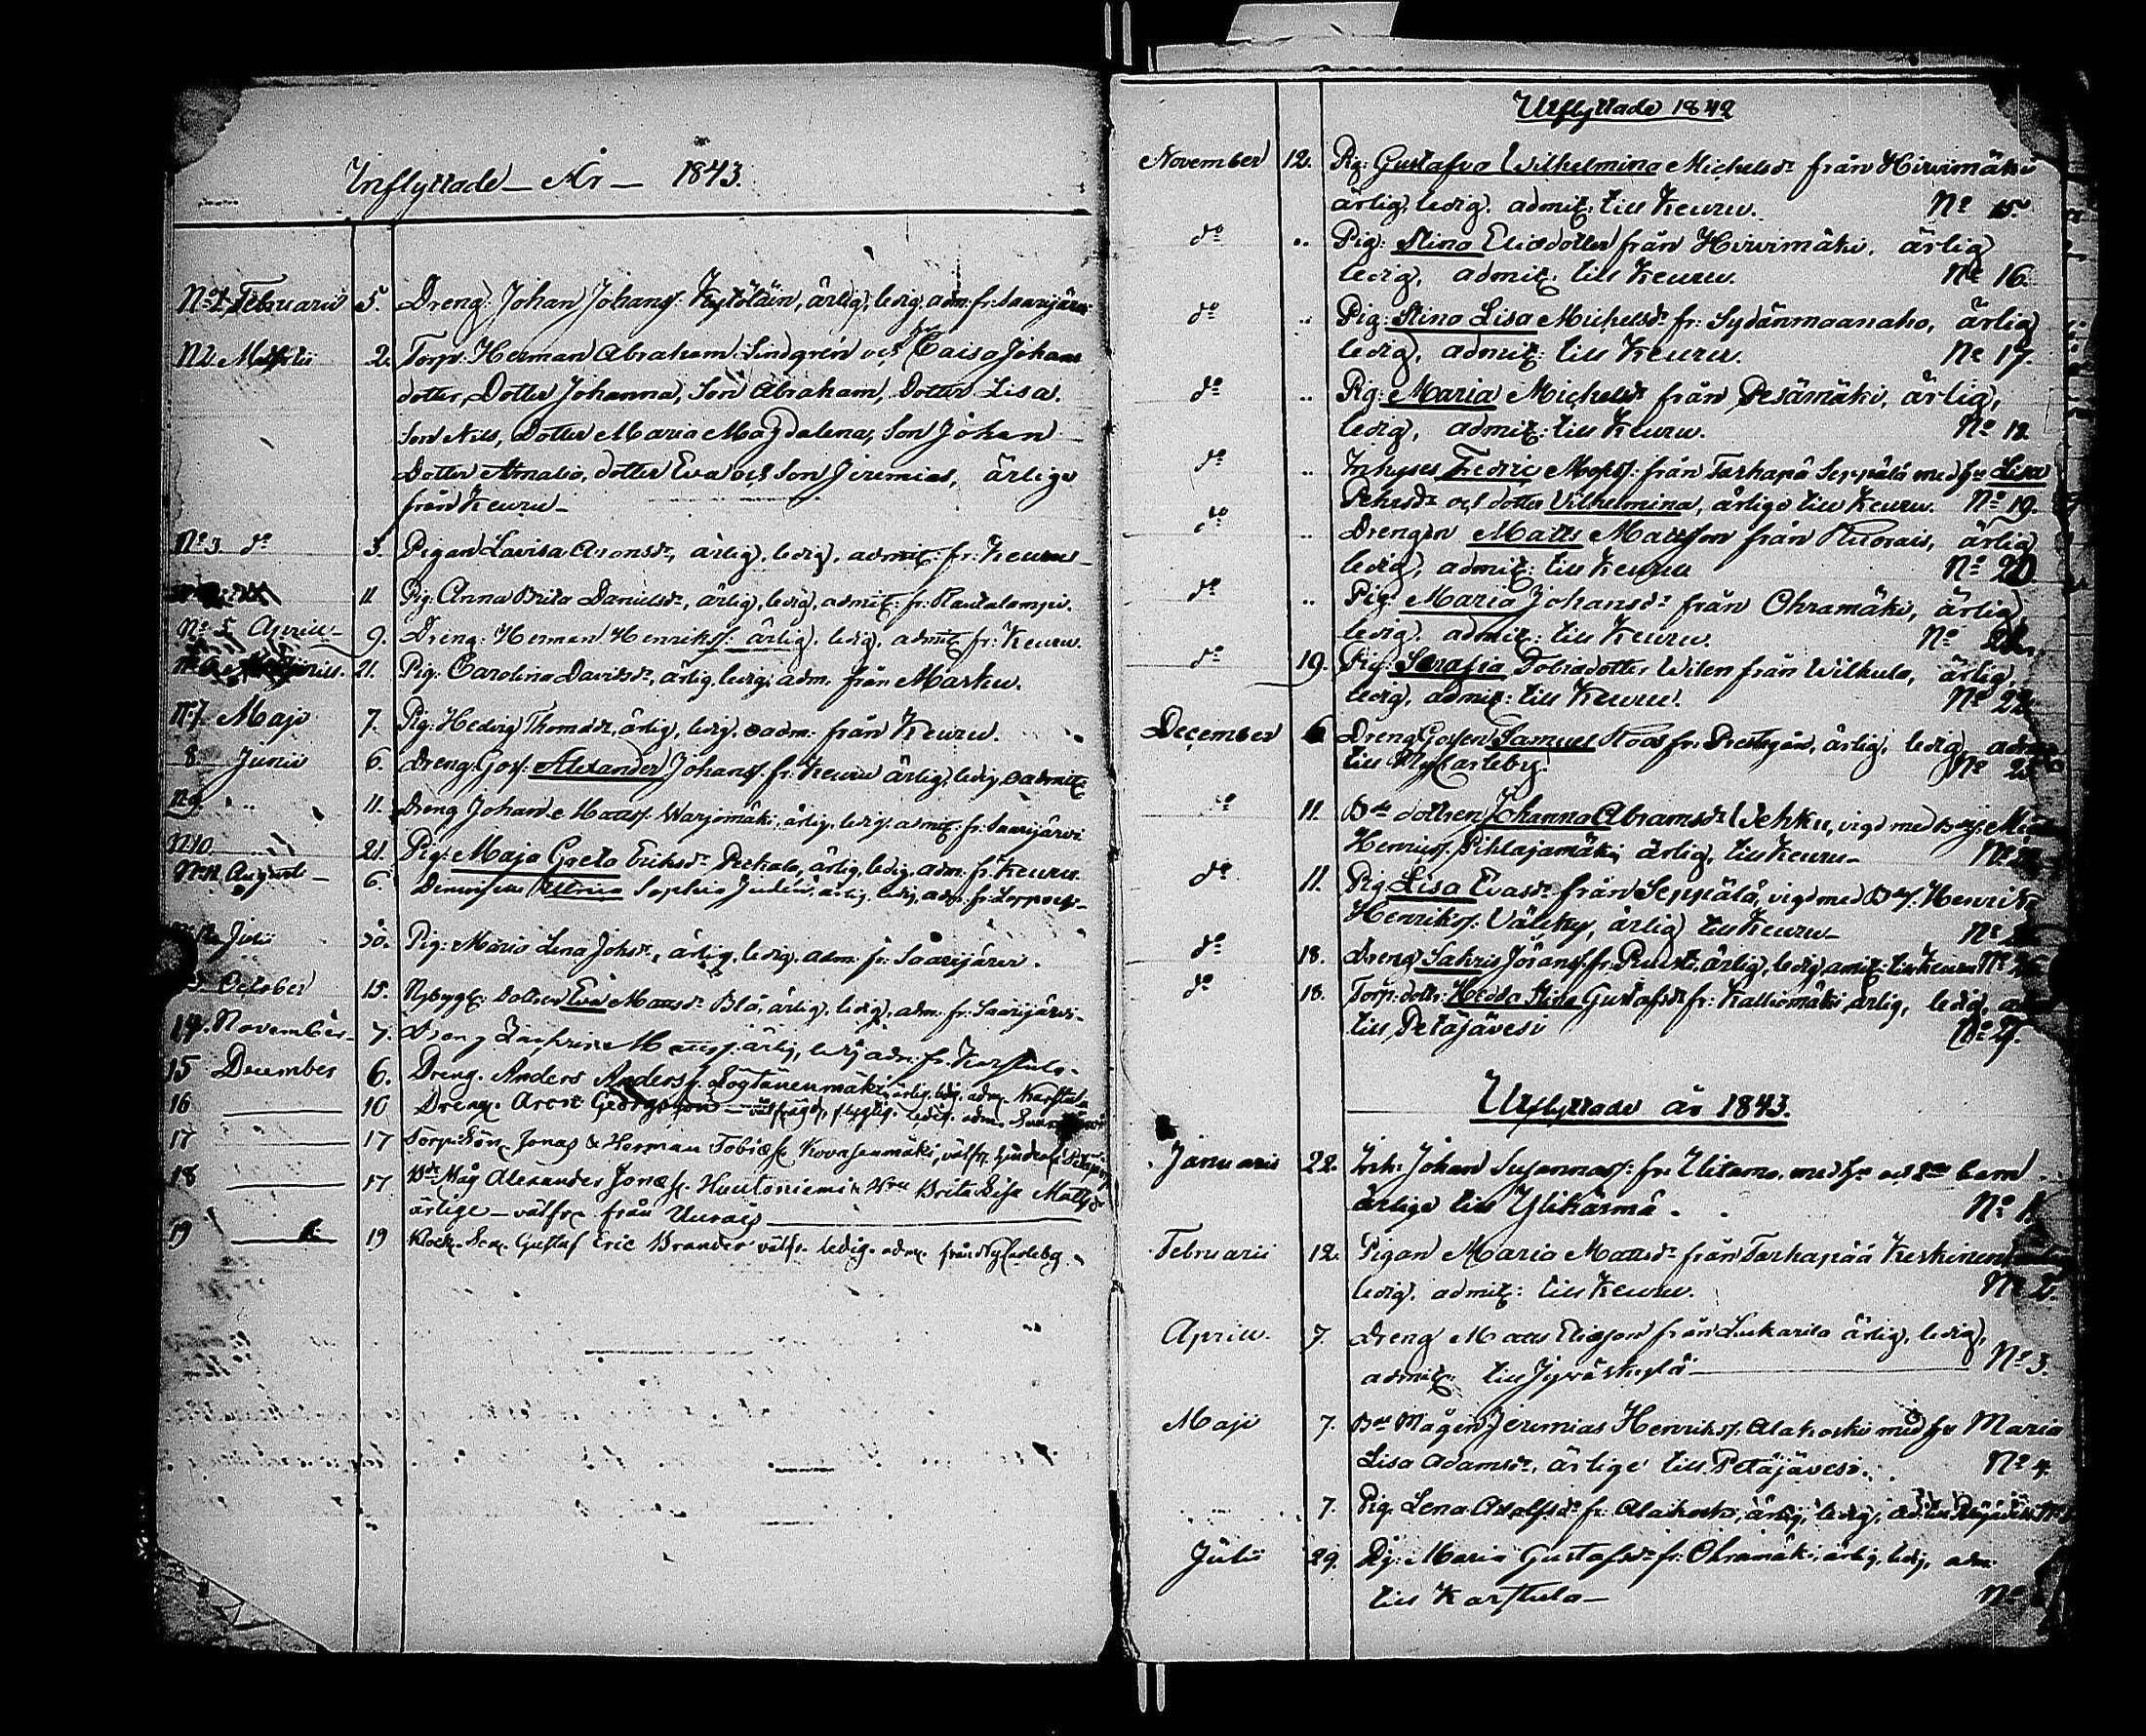 Inflyttade - År - 1843.
No 1. Februarii 5. Dreng: Johan Johans: Kytötäin, ärlig, ledig, adm: fr: Saarijärvi
N 2. Martii 2. Torp: Herman Abraham: Lindgren och Hu Caisa Johans
dotter, Dotter Johanna, Son Abraham, Dotter Lisa.
Son Nils, Dotter Maria Magdalena, Son Johan
Dotter Amalia, dotter Eva och Son Jeremias, ärlige
från Keuru -
No 3 do 3. Pigan Lovisa Aronsdr, ärlig, ledig, admit: fr: Keuru -
11. Pig: Anna Brita Danielsdr, ärlig, ledig, admit: fr: Rautalampi.
No 5 Aprill - 9. Dreng: Herman Henrikss: ärlig, ledig, admit fr: Keuru.
21. Pig: Carolina Davidsdr, ärlig, ledig, adm. från Masku.
No 7. Maji 7. Pig: Hedvig Thomasdr, ärlig, ledig, oadm. från Keuru.
8. Junii 6. Dreng: Goss: Alexander Johanss. fr: Keuru ärlig, ledig, oadmit:
N 9. .. 11. Dreng Johan Matss. Warjomäki, ärlig, ledig, admit: fr: Saarijärvi
N 10 21. Pig: Maja Greta Eriksdr Peckala, ärlig, ledig, adm. fr: Keuru
No 11 Augusti - 6. Sophia Judin, ärlig, ledig, adm. fr:
Julii 30. Pig: Maria Lena Johsdr, ärlig, ledig, adm. fr: Saarijärvi.
October 15. Nybygg: dotter Eva Mattsdr Blå, ärlig, ledig, adm. fr: Saarijärvi -
14. November - 7. Dreng Mattss. ärlig, ledig adm. fr. Karstula -
15 December 6. Dreng. Anders Anderss. ärlig, ledig, adm. Karstula
16 ——— 10 Dreng. Georgsson - ledig. adm.
17 ——— 17 Torp: Jonas & Herman Tobiæss.
18 ——— 17 Bde Måg Alexander Jonæss. Huutoniemi & Hru Brita Lisa Mattsdr
ärlige - välfr. från Uurais ———
19 ——— 19 Klock. Gustaf Eric Brander välfr. ledig. adm. från Nycarleby.
Utflyttade 1842
November 12. Pig: Gustafva Wilhelmina Michelsdr från Hirvimäki
ärlig, ledig, admit: till Keuru. No 15.
do .. Pig: Stina Eliædotter från Hirvimäki, ärlig
ledig, admit: till Keuru. No 16.
do .. Pig: Stina Lisa Michelsdr fr: Sydänmaanaho, ärlig
ledig, admit: till Keuru. No 17.
do .. Pig: Maria Michelsdr från Pesämäki, ärlig,
ledig, admit: till Keuru. No 18.
do .. Inhyses Fredric från Tarhapä Seppälä med hu Lisa
Pehrsdr och dotter Vilhelmina, ärlige till Keuru. No 19.
do .. Drengen Matts Mattsson från ärlig
ledig, admit: till Keuru No 20.
do .. Pig: Maria Johansdr från Ohramäki, ärlig
ledig, admit: till Keuru. No 21.
do 19. Pig: Serafia Tobiædotter Wilen från Wilkula, ärlig,
ledig, admit: till Keuru. No 22
December 6 Dreng Gossen Samuel Roos fr: Prestgår, ärlig, ledig, adm
till Nycarleby. No 23
do 11. Bde dottren Johanna Abramsdr Wehku, vigd med
Henrikss. Pihlajamäki ärlig, till Keuru -
do 11. Pig: Lisa Evasdr från Seppälä, vigd med Henrik
Henrikss. Välcky, ärlig till Keuru -
do 18. Dreng Sakris Jöranss. fr. ärlig, ledig amit: till Keuru No 26
do 18. Torp: dottr: Hedda Stina Gustafsdr fr: Kalliomäki, ärlig, ledig, ad
till Petäjävesi No 27.
Utflyttade år 1843.
Januarii 22. Inh: Johan Susannass: fr: Ylitamo. med hu och 2ne barn
ärlige till Ylikärmä. . No 1.
Februarii 12. Pigan Maria Mattsdr från Tarhapää Keskinen
ledig, admit: till Keuru. No 2.
Aprill. 7. Dreng Matts Eliasson från Luckarila ärlig, ledig,
admit: till Jyväskylä ——— No 3.
Maji 7. Bde Mågen Jeremias Henrikss. Alakoski med hu Maria
Lisa Adamsdr, ärlige till Petäjävesi. . No 4.
7. Pig. Lena Adolfsdr fr. Alakoski, ärlig, ledig, ad: till Petäjävesi No
Julii 29. Pig: Maria Gustafsdr fr: Ohramäki, ärlig, ledig, adm:
till Karstula - No